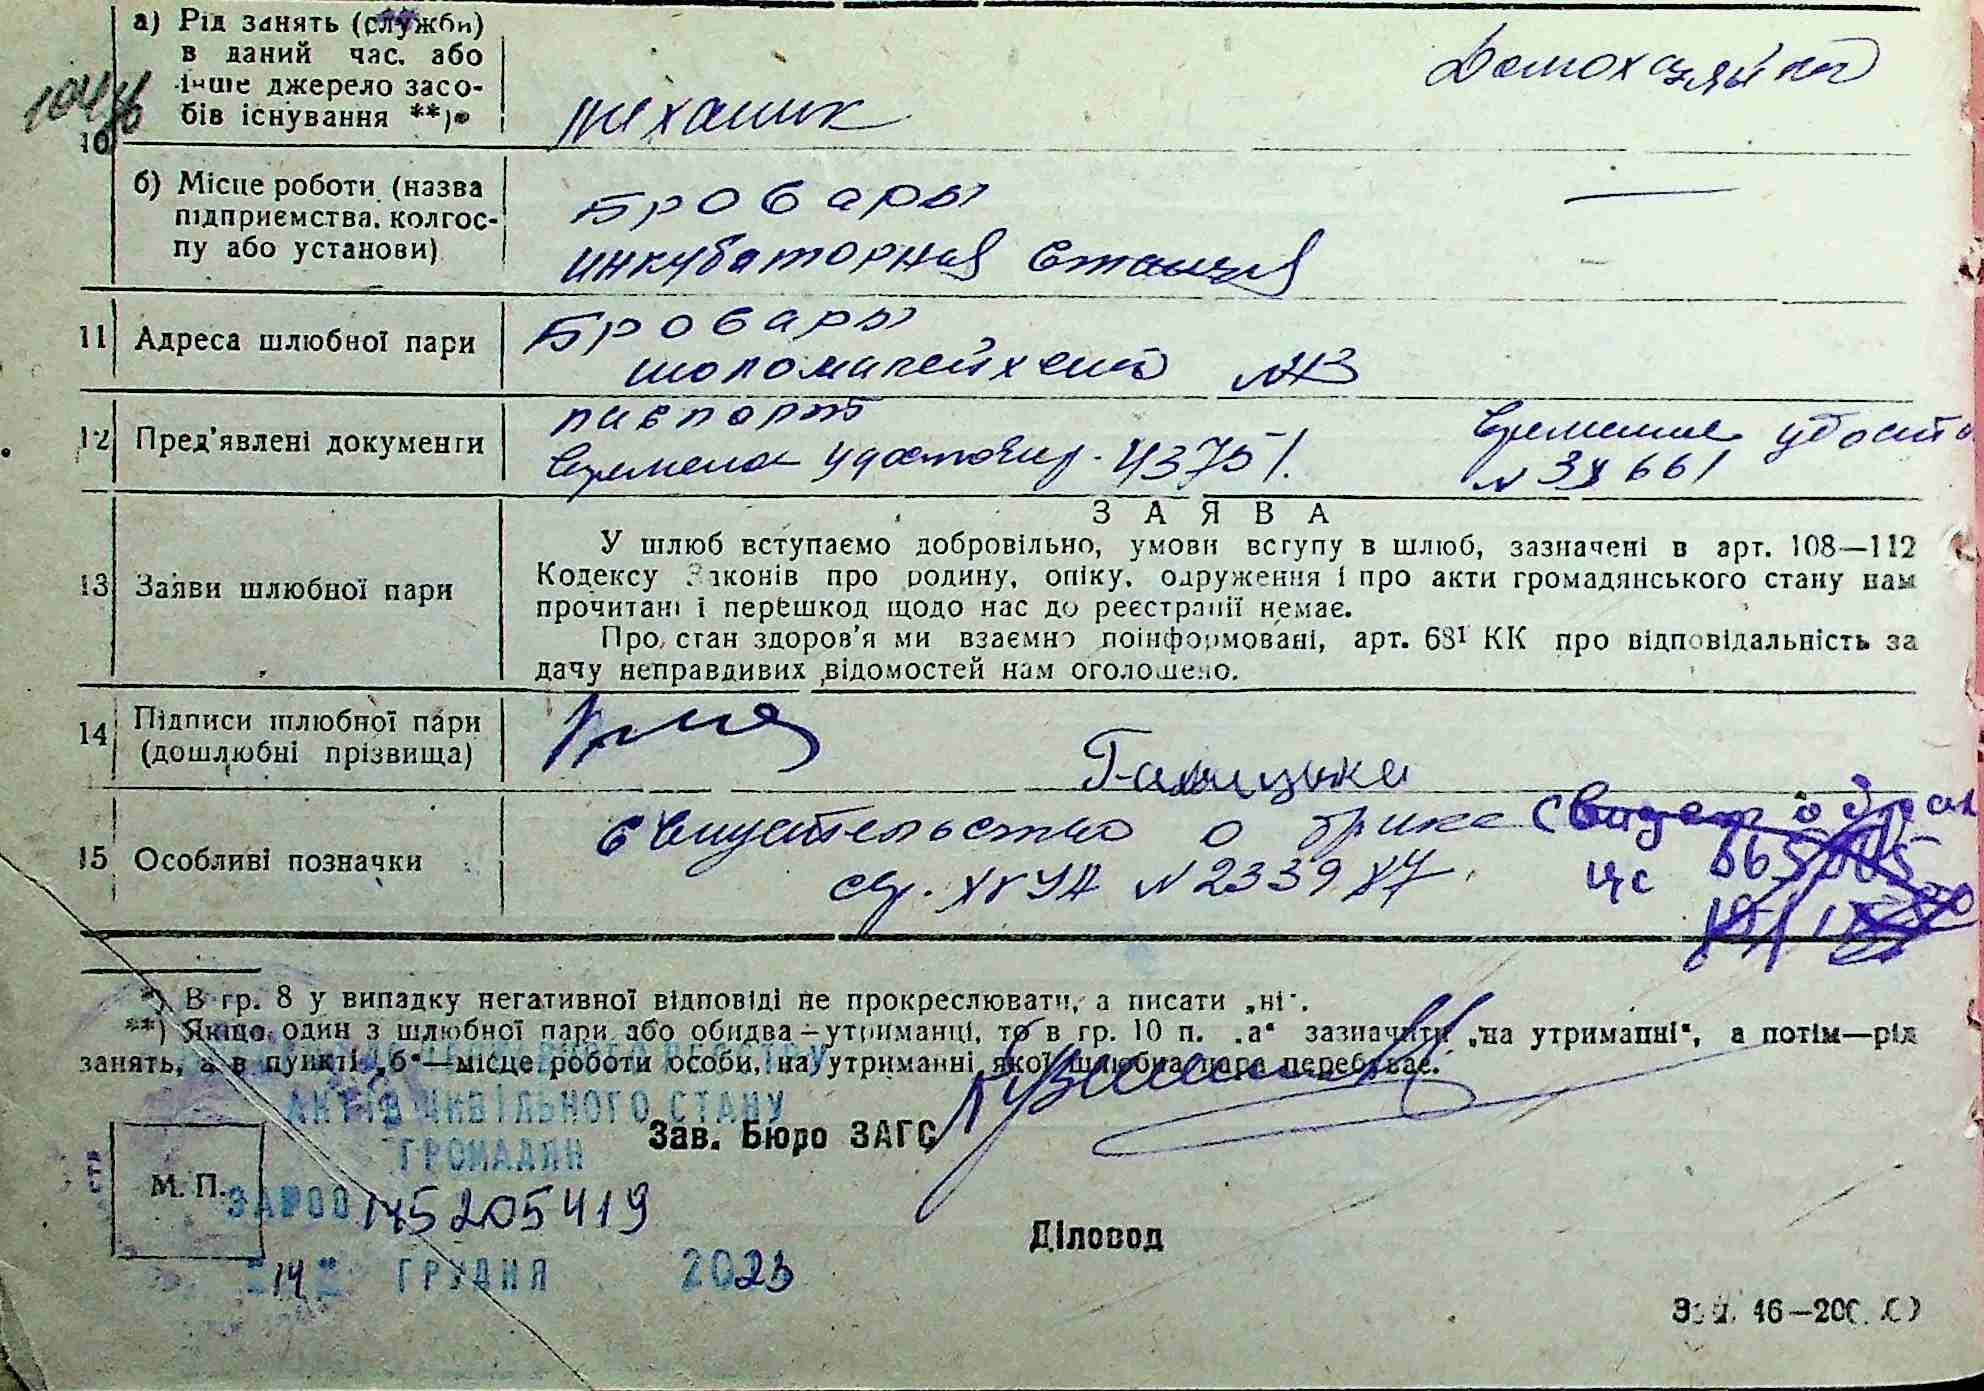 а) Рід занять (служби)
в даний час, або
інше джерело засо-
бів існування **)
механик
Домохозяйка
10
б) Місце роботи (назва
підприємства, колгос-
пу або установи)
Бровары
инкубаторная станция
11 Адреса шлюбної пари
Бровары
№
12 Пред'явлені документи
паспорт
Времена удостовер. 43751.
Временное удосто
№ 661
13 Заяви шлюбної пари
ЗАЯВА
У шлюб вступаємо добровільно, умови вступу в шлюб, зазначені в арт. 108—112
Кодексу Законів про родину, опіку, одруження і про акти громадянського стану нам
прочитані і перешкод щодо нас до реєстрації немає.
Про стан здоров'я ми взаємно поінформовані, арт. 68¹ КК про відповідальність за
дачу неправдивих відомостей нам оголошено.
14 Підписи шлюбної пари
(дошлюбні прізвища)
Галицька
15 Особливі позначки
Свидетельство о браке
№ 233987
Свидет о брак
*) В гр. 8 у випадку негативної відповіді не прокреслювати, а писати „ні".
**) Якщо один з шлюбної пари або обидва—утриманці, то в гр. 10 п. „а" зазначити „на утриманні", а потім—рід
занять, а в пункті „б"—місце роботи особи, на утриманні якої шлюбна пара перебуває.
АКТІВ ЦИВІЛЬНОГО СТАНУ
ГРОМАДЯН
Зав. Бюро ЗАГС
М. П.
205419
Діловод
14 ГРУДНЯ 2023
Зам. 46—200